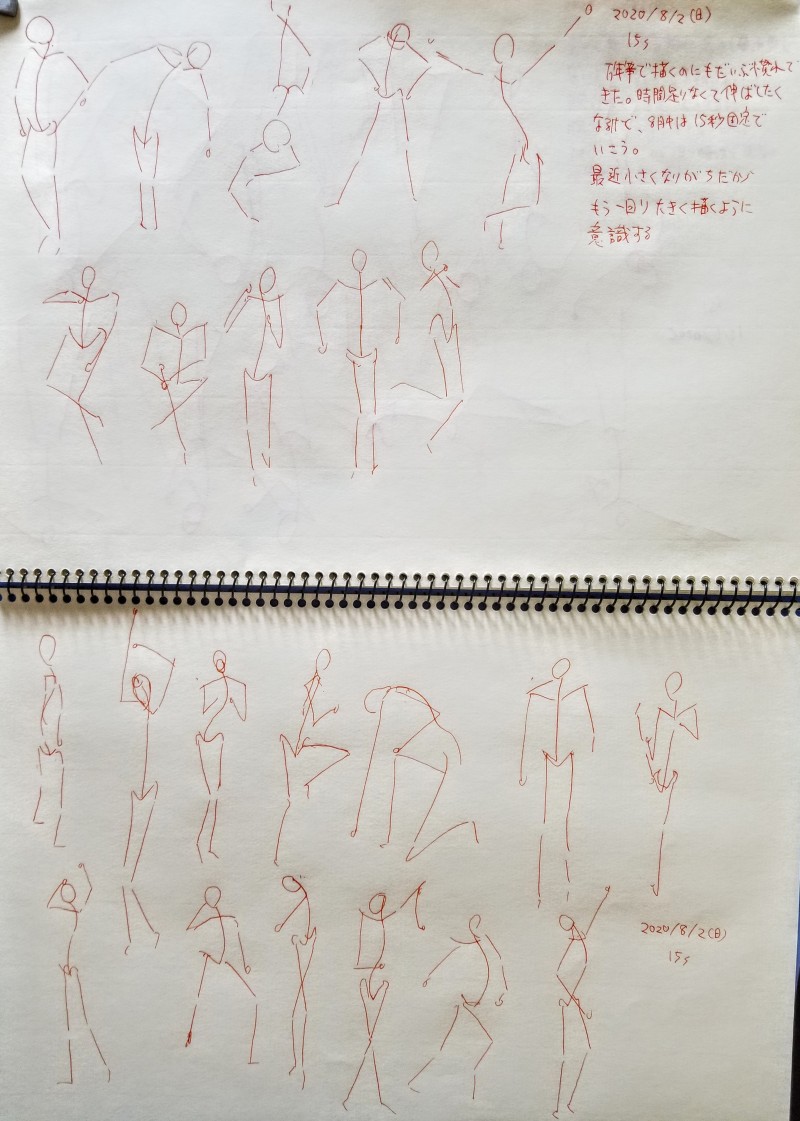 2020/8/2(日)
15s
万年筆で描くのにもだいぶ慣れて
きた。時間足りなくて伸ばしたく
なるけど、8月中は15秒固定で
いこう。
最近小さくなりがちだから
もう一回り大きく描くように
意識する
2020/8/2(日)
15s